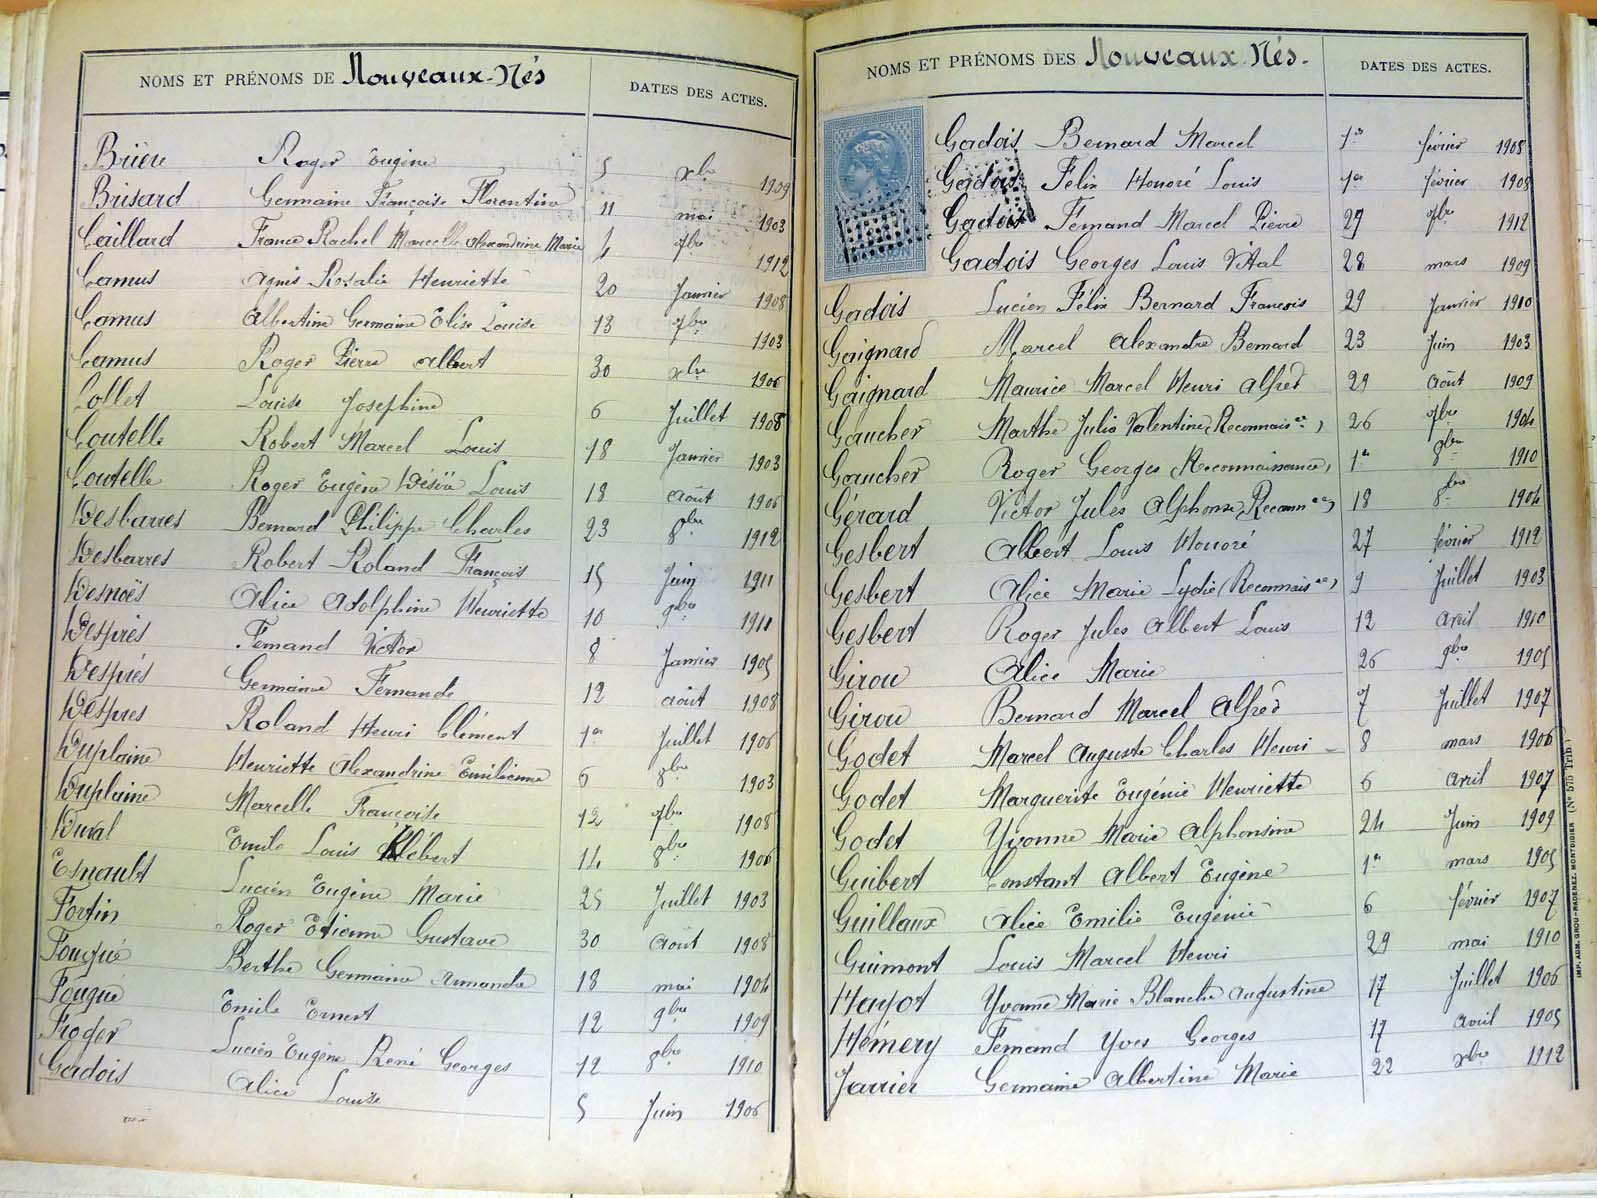 NOMS ET PRÉNOMS DE Nouveaux-Nés DATES DES ACTES.
Brière Roger Eugène 5 xbre 1909
Brisard Germaine Françoise Florentine 11 mai 1903
Caillard France Rachel Marcelle Alexandrine Marie 4 7bre 1912
Camus Agnès Rosalie Henriette 20 Janvier 1908
Camus Albertine Germaine Elise Louise 13 7bre 1903
Camus Roger Pierre Albert 30 xbre 1906
Collet Louise Joséphine 6 Juillet 1908
Coutelle Robert Marcel Louis 18 Janvier 1903
Coutelle Roger Eugène Désiré Louis 18 Août 1906
Desbarres Bernard Philippe Charles 23 8bre 1912
Desbarres Robert Roland François 15 Juin 1911
Desnoës Alice Adolphine Henriette 10 9bre 1911
Després Fernand Victor 8 Janvier 1905
Després Germaine Fernande 12 août 1908
Després Roland Henri Clément 1er Juillet 1906
Duplaine Henriette Alexandrine Emilienne 6 8bre 1903
Duplaine Marcelle Françoise 12 7bre 1908
Duval Emile Louis Klébert 14 8bre 1906
Esnault Lucien Eugène Marie 25 Juillet 1903
Fortin Roger Etienne Gustave 30 Août 1908
Fouqué Berthe Germaine Armande 18 mai 1904
Fouqué Emile Ernest 12 9bre 1909
Froger Lucien Eugène René Georges 12 8bre 1910
Gadois Alice Louise 5 Juin 1906
NOMS ET PRÉNOMS DES Nouveaux-Nés- DATES DES ACTES.
Gadois Bernard Marcel 1er février 1908
Gadois Félix Honoré Louis 1er février 1908
Gadois Fernand Marcel Pierre 27 7bre 1912
Gadois Georges Louis Vital 28 mars 1909
Gadois Lucien Félix Bernard François 29 Janvier 1910
Gaignard Marcel Alexandre Bernard 23 Juin 1903
Gaignard Maurice Marcel Henri Alfred 29 Août 1909
Gaucher Marthe Julia Valentine (Reconnaisce) 26 7bre 1904
Gaucher Roger Georges (Reconnaissance) 1er 8bre 1910
Gérard Victor Jules Alphonse (Reconnce) 18 8bre 1904
Gesbert Albert Louis Honoré 27 février 1912
Gesbert Alice Marie Lydie (Reconnaisce) 9 Juillet 1903
Gesbert Roger Jules Albert Louis 12 Avril 1910
Girou Alice Marie 26 9bre 1905
Girou Bernard Marcel Alfred 7 Juillet 1907
Godet Marcel Auguste Charles Henri - 8 mars 1906
Godet Marguerite Eugénie Henriette 6 Avril 1907
Godet Yvonne Marie Alphonsine 24 Juin 1909
Guibert Constant Albert Eugène 1er mars 1905
Guillaux Alice Emilie Eugénie 6 février 1907
Guimont Louis Marcel Henri 29 mai 1910
Hayot Yvonne Marie Blanche Augustine 17 Juillet 1906
Hémery Fernand Yves Georges 17 Avril 1905
Jarrier Germaine Albertine Marie 22 xbre 1912
IMP. ADM. GROU-RADENEZ, MONTDIDIER (No 575 Trib.)